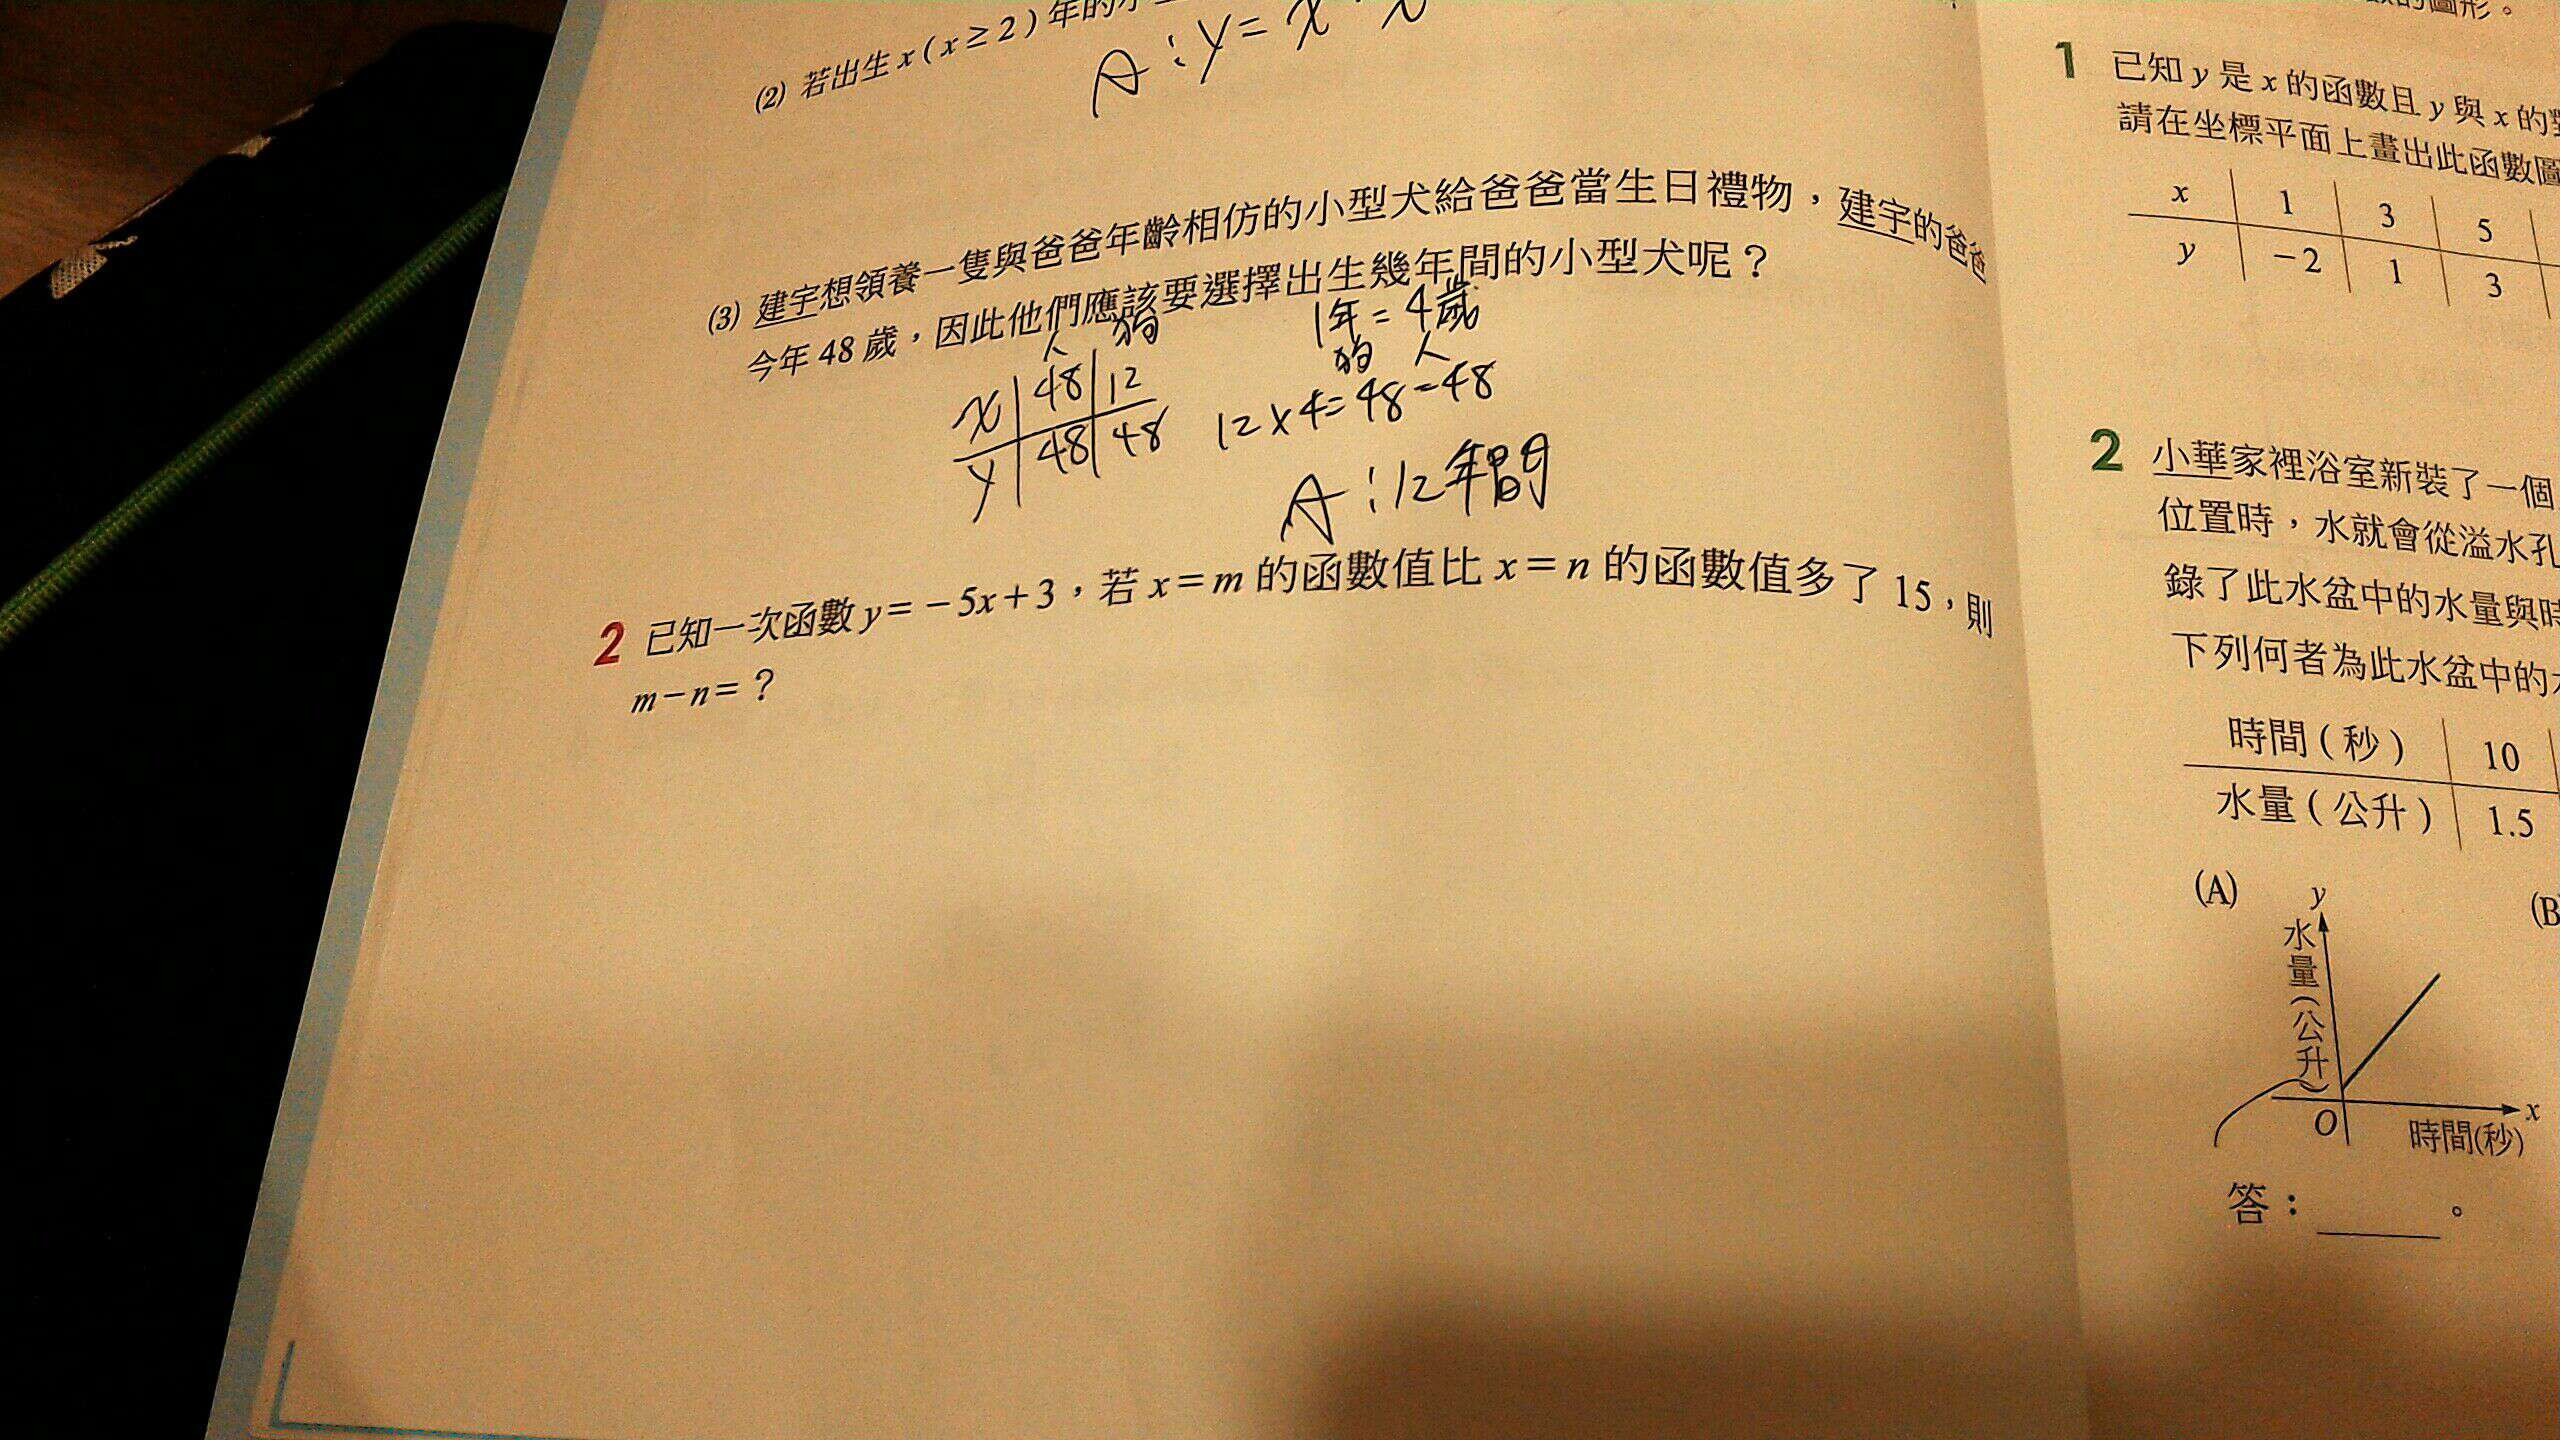 (2) 若出生 x ( x ≥ 2 ) 年的小
A：y = x
(3) 建宇想領養一隻與爸爸年齡相仿的小型犬給爸爸當生日禮物，建宇的爸爸
今年 48 歲，因此他們應該要選擇出生幾年間的小型犬呢？
人 狗
x 48 12
y 48 48
1年 = 4歲
狗 人
12×4=48=48
A：12年間
2 已知一次函數 y＝－5x＋3，若 x＝m 的函數值比 x＝n 的函數值多了 15，則
m－n＝？
的圖形。
1 已知 y 是 x 的函數且 y 與 x 的
請在坐標平面上畫出此函數圖
x 1 3 5
y －2 1 3
2 小華家裡浴室新裝了一個
位置時，水就會從溢水孔
錄了此水盆中的水量與時
下列何者為此水盆中的
時間（秒） 10
水量（公升） 1.5
(A) (B
y
水量(公升)
O x
時間(秒)
答：　　　。